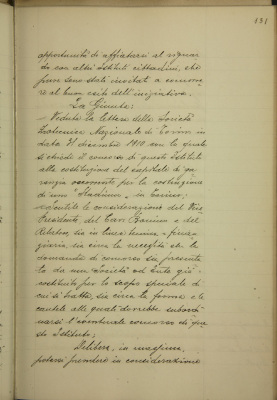 131
opportunità di affiatarsi al riguar-
do con altri Istituti cittadini, che
pure sono stati invitati a concorre-
re al buon esito dell'iniziativa.
La Giunta:
- Veduta la lettera della Società
Ippica Nazionale di Torino in
data 31 dicembre 1910 con la quale
si chiede il concorso di questo Istituto
alla costituzione del capitale di ga-
ranzia occorrente per la costruzione
di uno "Stadium", in Torino;
- sentite le considerazioni del Vice
Presidente, del Cav. Bonino e del
Relatore, sia in linea tecnica e finan-
ziaria, sia circa la necessità che la
domanda di concorso sia presenta-
ta da una Società od Ente già
costituito per lo scopo speciale di
cui si tratta, sia circa la forma e le
cautele alle quali dovrebbe subordi-
narsi l'eventuale concorso di que-
sto Istituto;
Delibera, in massima,
potersi prendere in considerazione